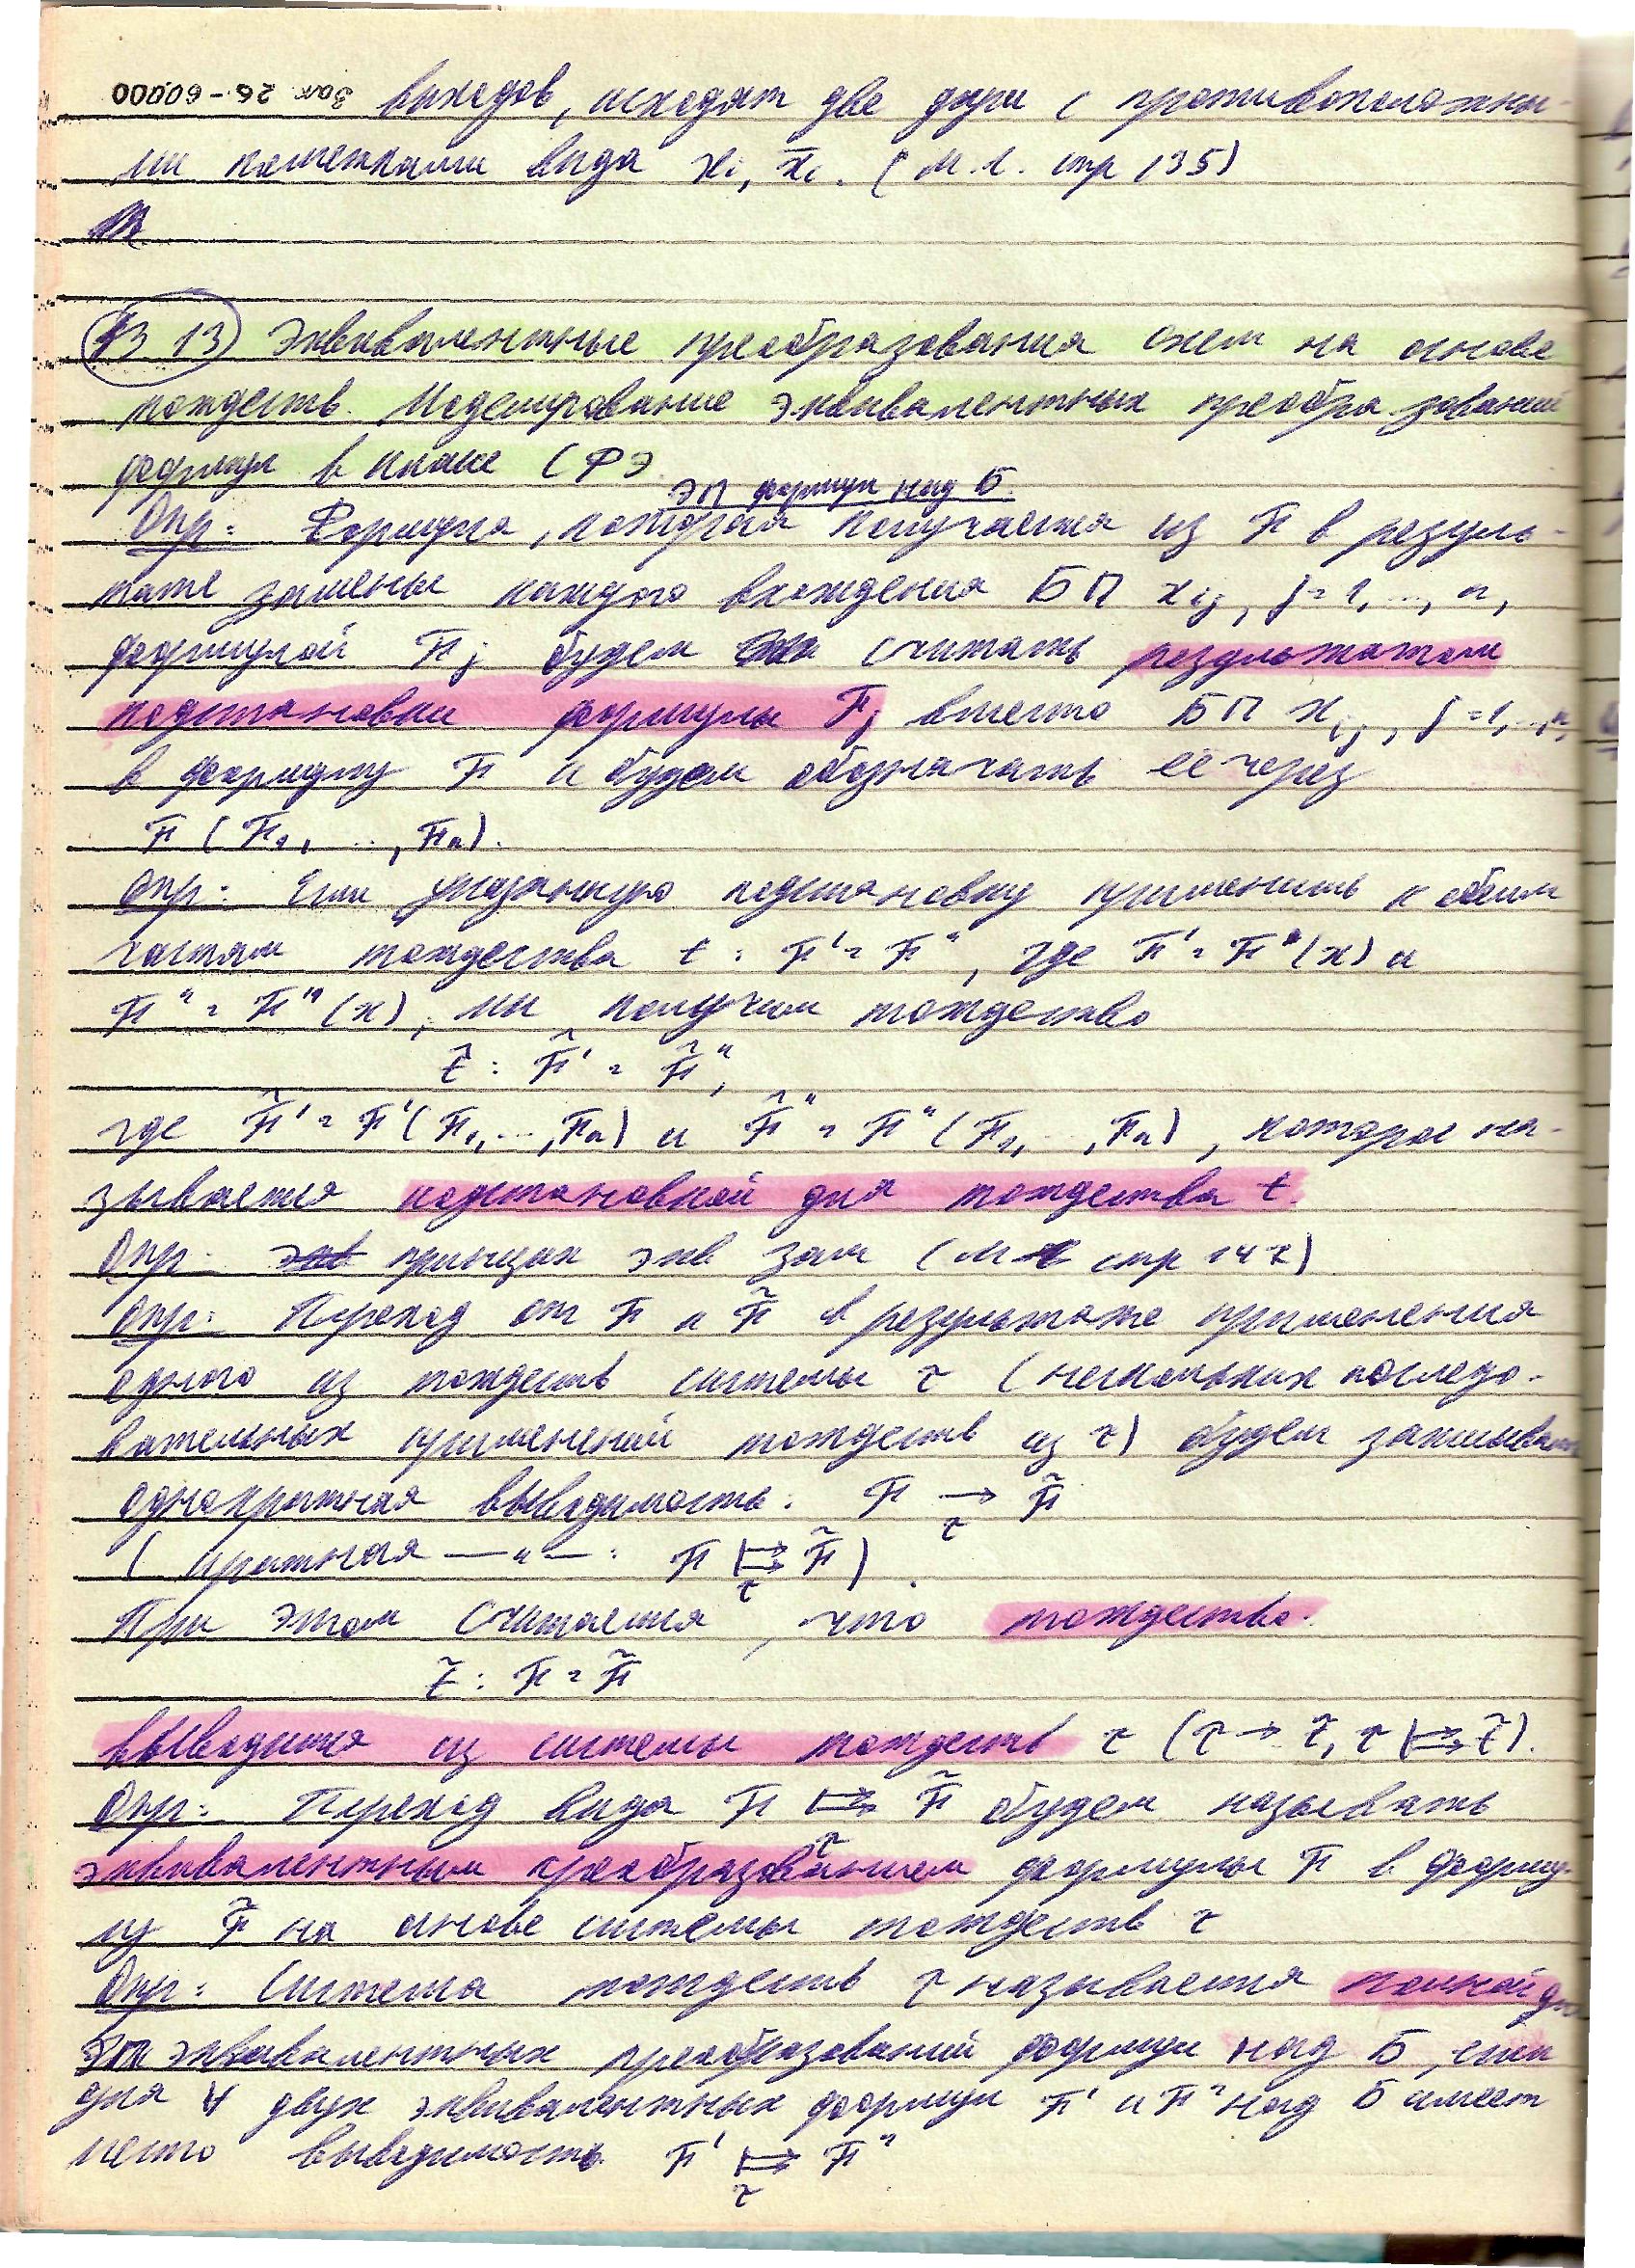 Зак 26-60000 выходов, исходят две дуги с противоположны-
ми пометками вида xi, x̄i. (М.Л. стр 135)
В 13 Эквивалентные преобразования схем на основе
тождеств. Моделирование эквивалентных преобразований
формул в классе СФЭ.
ЭП формул над Б.
Опр: Формула, которая получается из F в резуль-
тате замены каждого вхождения БП x_{ij}, j=1,...,n,
формулой Fj будем считать результатом
подстановки формулы Fj вместо БП x_{ij}, j=1,...,n,
в формулу F и будем обозначать её через
F (F1, ..., Fn).
Опр: Если указанную подстановку применить к обеим
частям тождества t : F' = F", где F' = F'(x) и
F" = F"(x), мы получим тождество
t̂ : F̂' = F̂",
где F̂' = F'(F1,...,Fn) и F̂" = F"(F1,...,Fn), которое на-
зывается подстановкой для тождества t.
Опр: принцип экв зам (М стр 147)
Опр: Переход от F к F̃ в результате применения
одного из тождеств системы τ (нескольких последо-
вательных применений тождеств из τ) будем записывать
однократная выводимость: F →τ F̃
( кратная —"— : F |⇉τ F̃ ).
При этом считается, что тождество.
t̃ : F = F̃
выводится из системы тождеств τ (τ → t̃, τ |⇉ t̃).
Опр: Переход вида F |⇉τ F̃ будем называть
эквивалентным преобразованием формулы F в форму-
лу F̃ на основе системы тождеств τ
Опр: Система тождеств τ называется полной для
эквивалентных преобразований формул над Б, если
для ∀ двух эквивалентных формул F' и F" над Б имеет
место выводимость F' |⇉τ F"